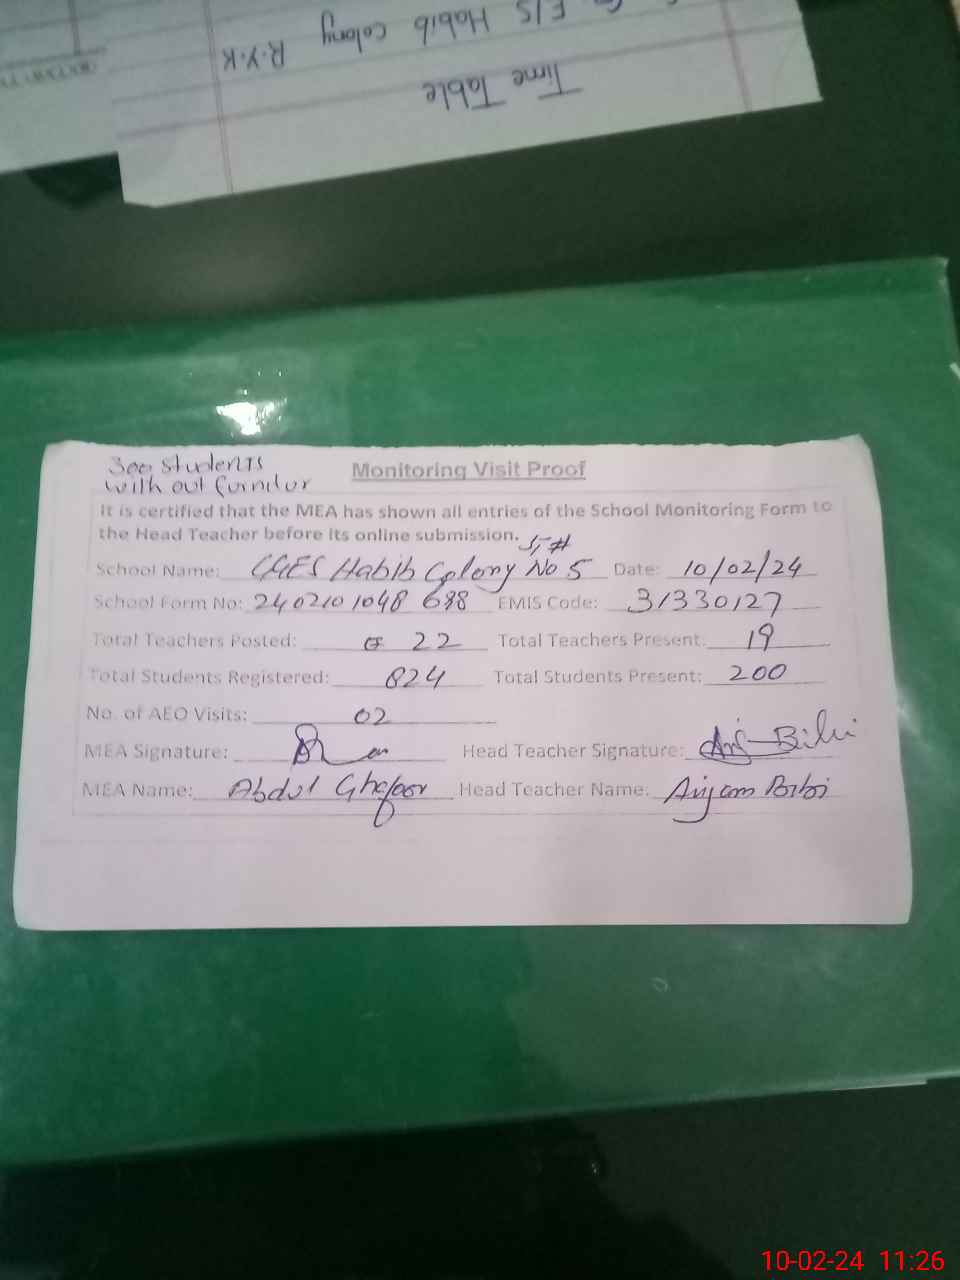 G E/S Habib Colony R.Y.K
Time Table
300 Students
with out furnitur
Monitoring Visit Proof
It is certified that the MEA has shown all entries of the School Monitoring Form to
the Head Teacher before its online submission.
School Name: GGES Habib Colony No 5 Date: 10/02/24
School Form No: 2402101048 698 EMIS Code: 31330127
Total Teachers Posted: 22 Total Teachers Present: 19
Total Students Registered: 824 Total Students Present: 200
No. of AEO Visits: 02
MEA Signature: Head Teacher Signature: Bibi
MEA Name: Abdul Ghafoor Head Teacher Name: Anjam Bibi
10-02-24 11:26